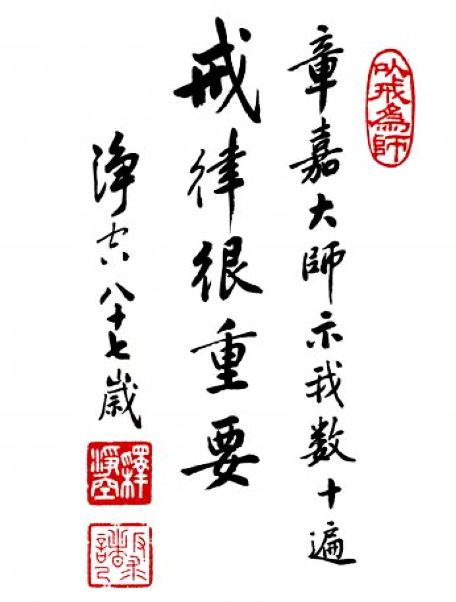 以戒為師
章嘉大師示我数十遍
戒律很重要
淨空八十七歲
釋淨空